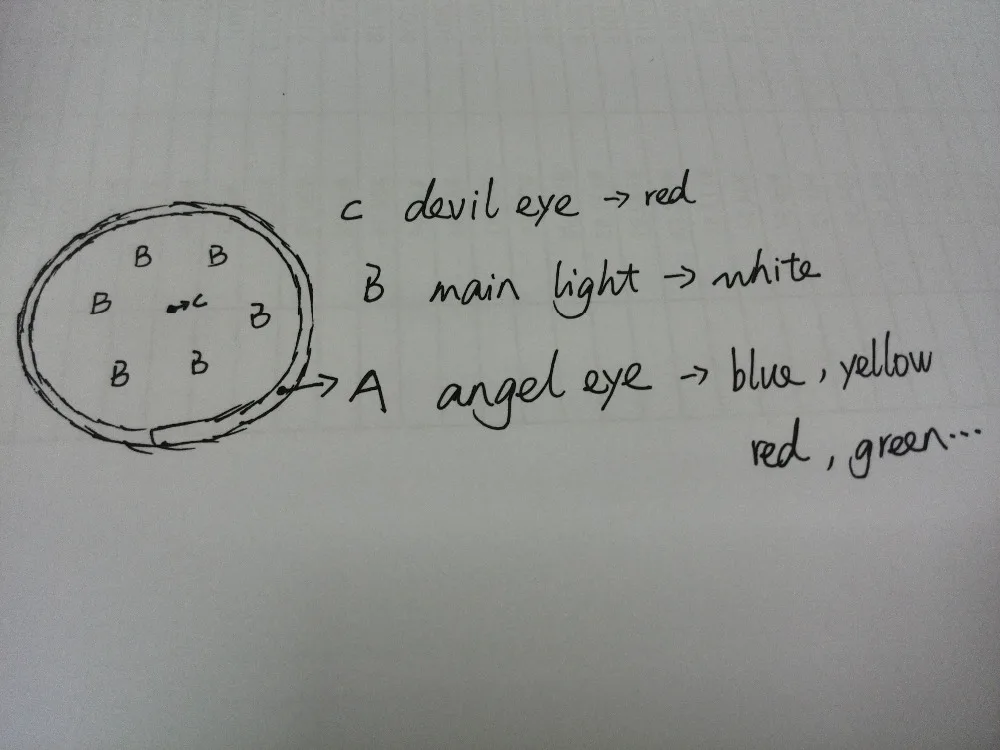 B B
B → c B
B B
c devil eye → red
B main light → white
→ A angel eye → blue, yellow
red, green...